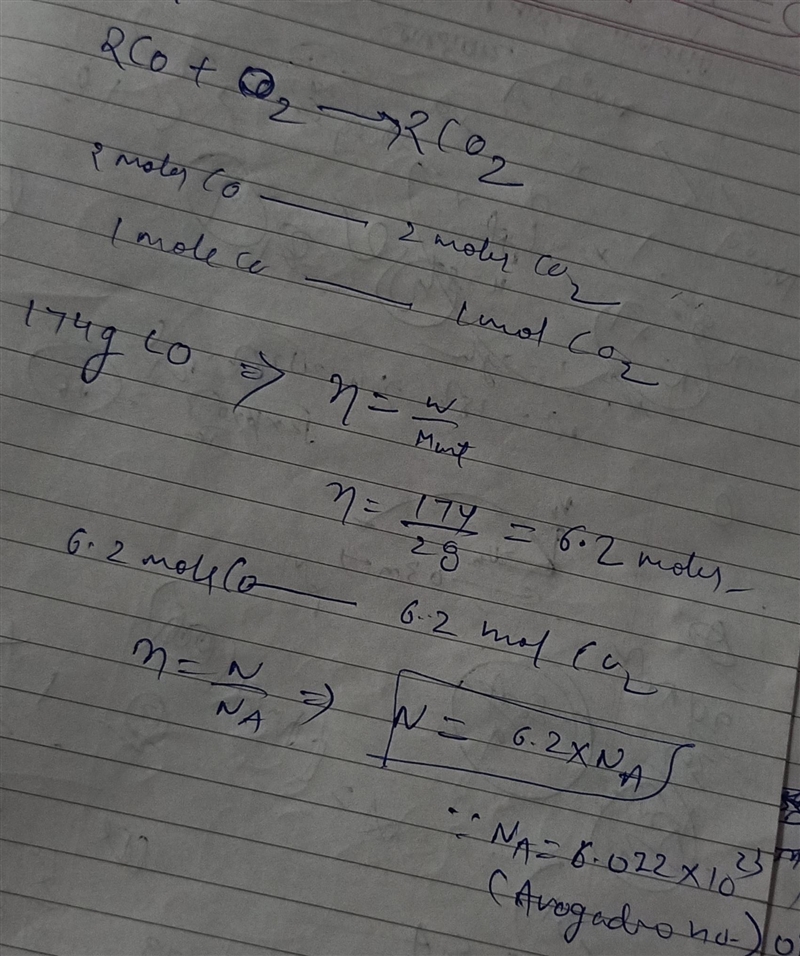 2CO + O2 → 2CO2
2 moles CO — 2 moles CO2
1 mole CO — 1 mol CO2
174g CO ⇒ n = w/Mwt
n = 174/28 = 6.2 moles
6.2 mole CO — 6.2 mol CO2
n = N/NA ⇒ N = 6.2 × NA
∵ NA = 6.022 × 10^23
(Avogadro no.)